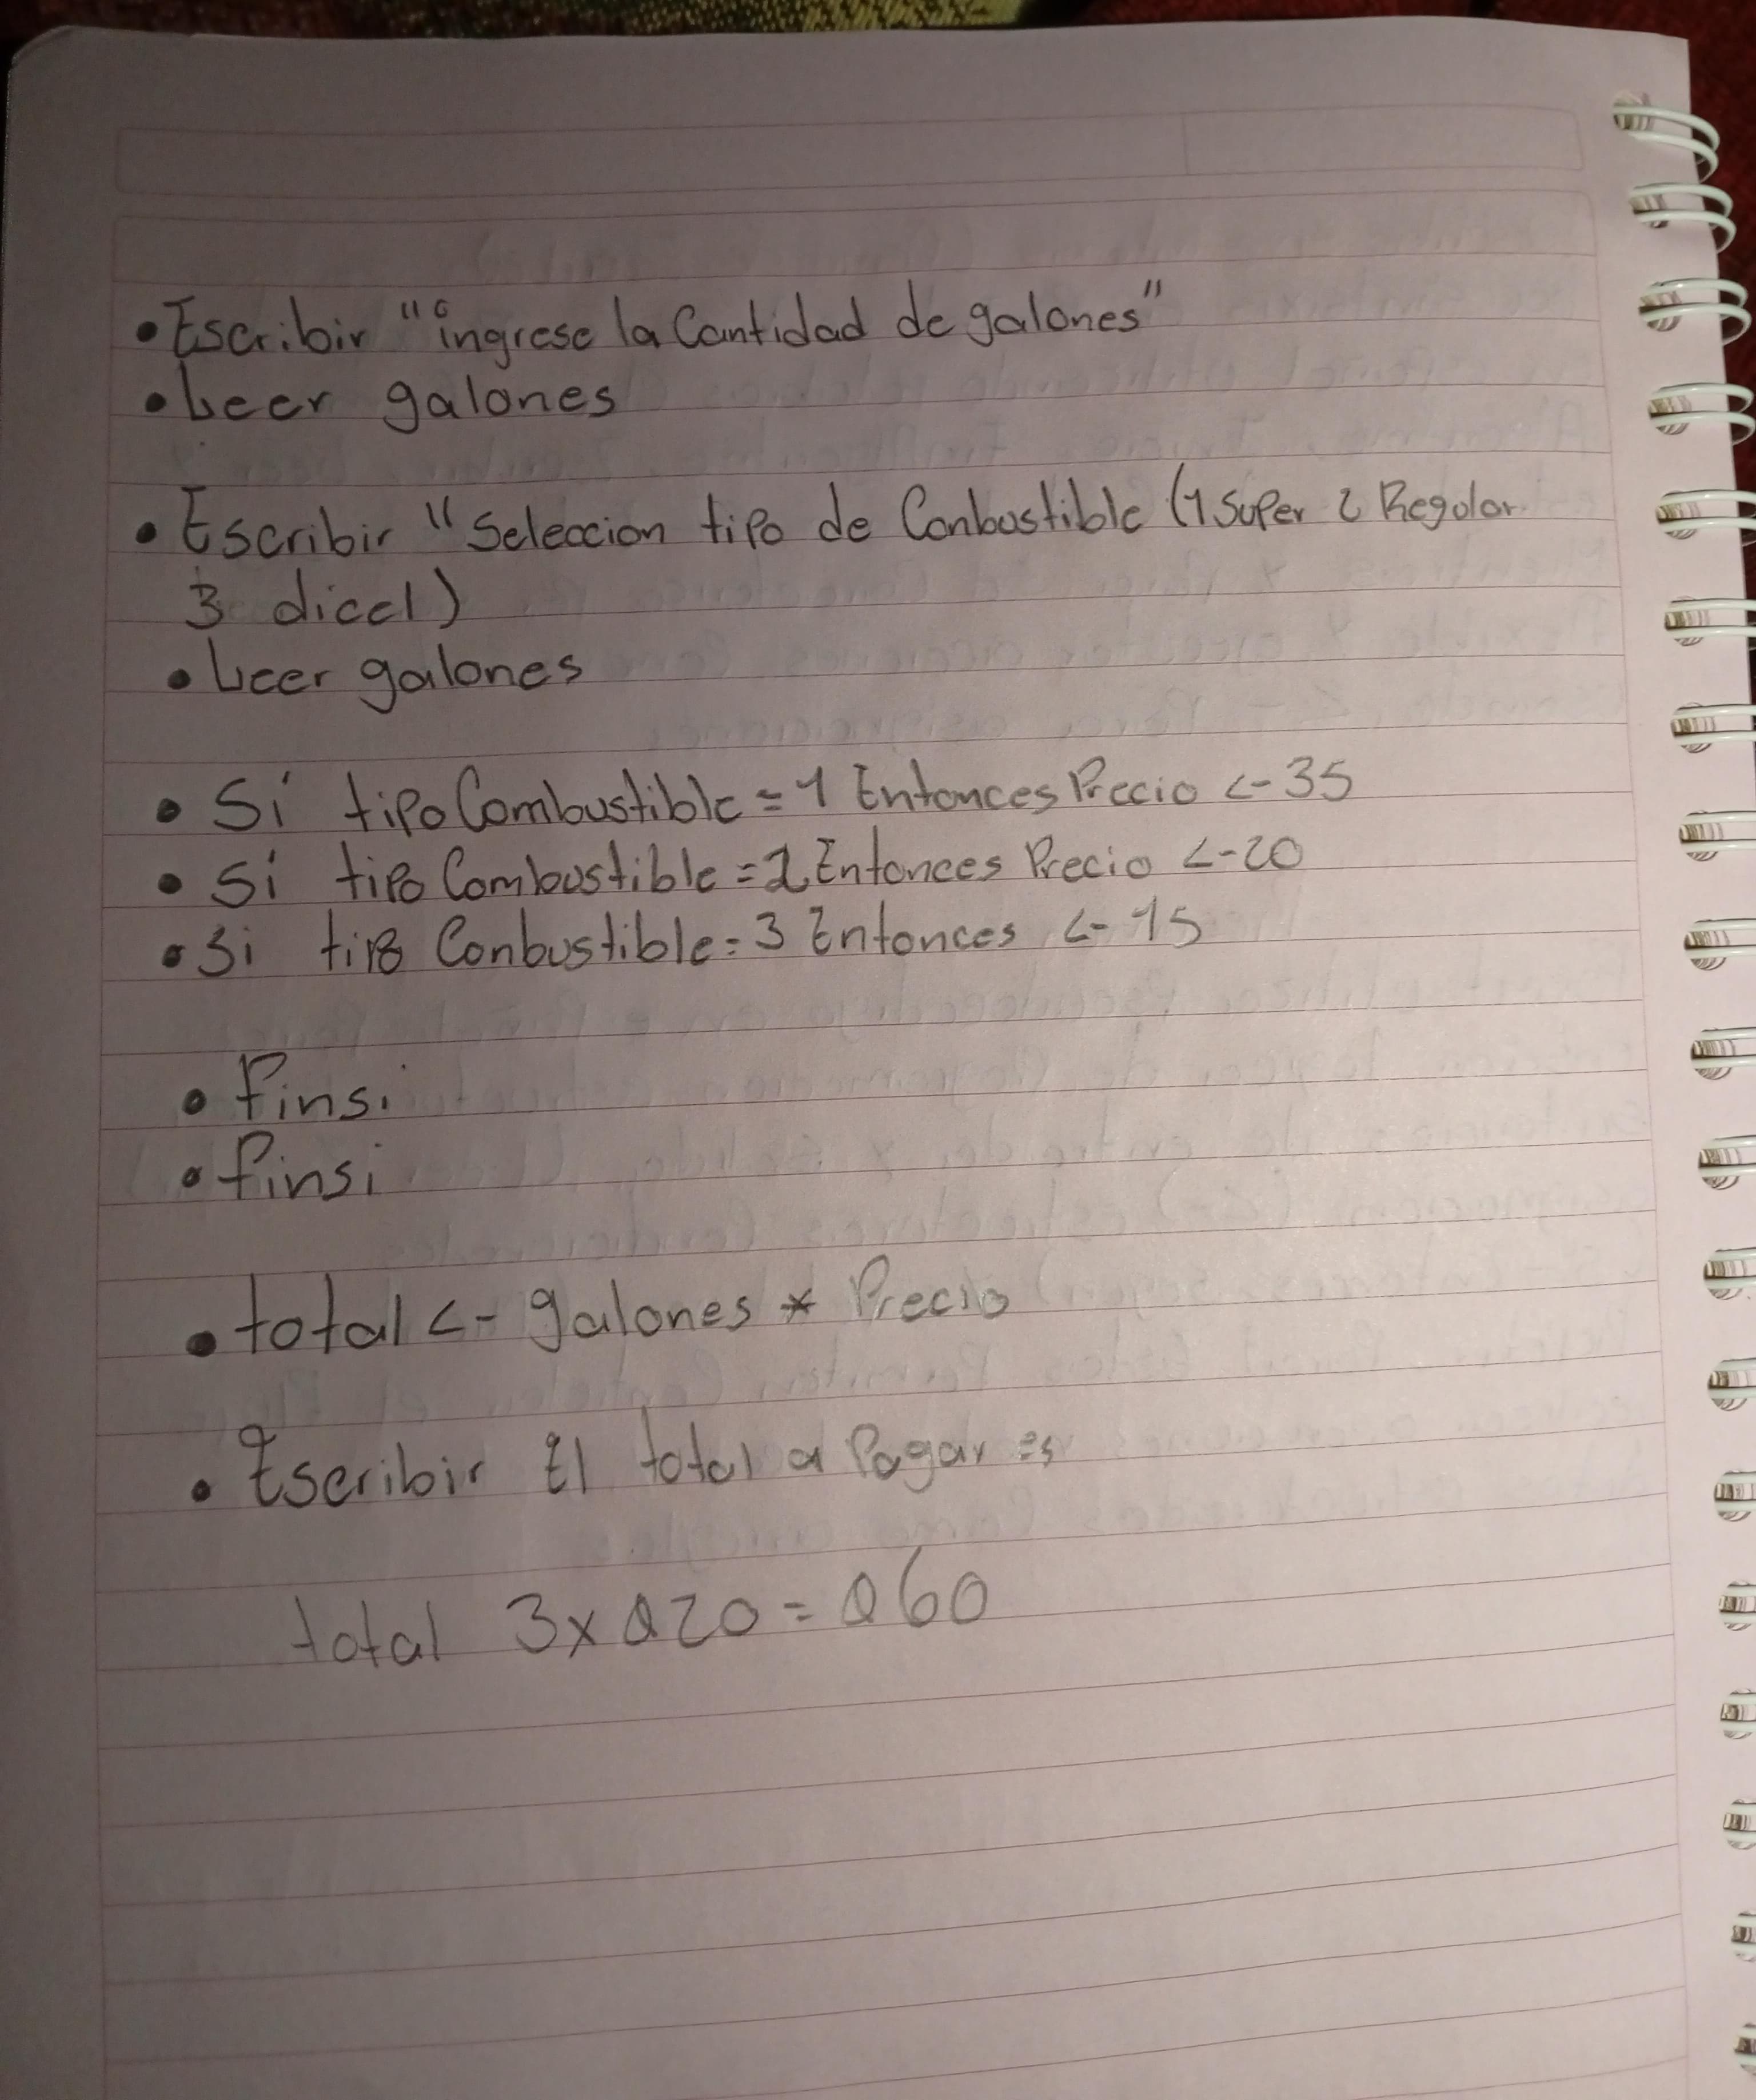 • Escribir "ingrese la Cantidad de galones"
• Leer galones
• Escribir "Seleccion tipo de Conbustible (1 Super 2 Regular
3 dicel)
• Leer galones
• Si tipo Combustible = 1 Entonces Precio <- 35
• Si tipo Combustible = 2 Entonces Precio <- 20
• Si tipo Conbustible = 3 Entonces <- 15
• Finsi
• finsi
• total <- galones * Precio
• Escribir El total a Pagar es
total 3 x Q20 = Q60